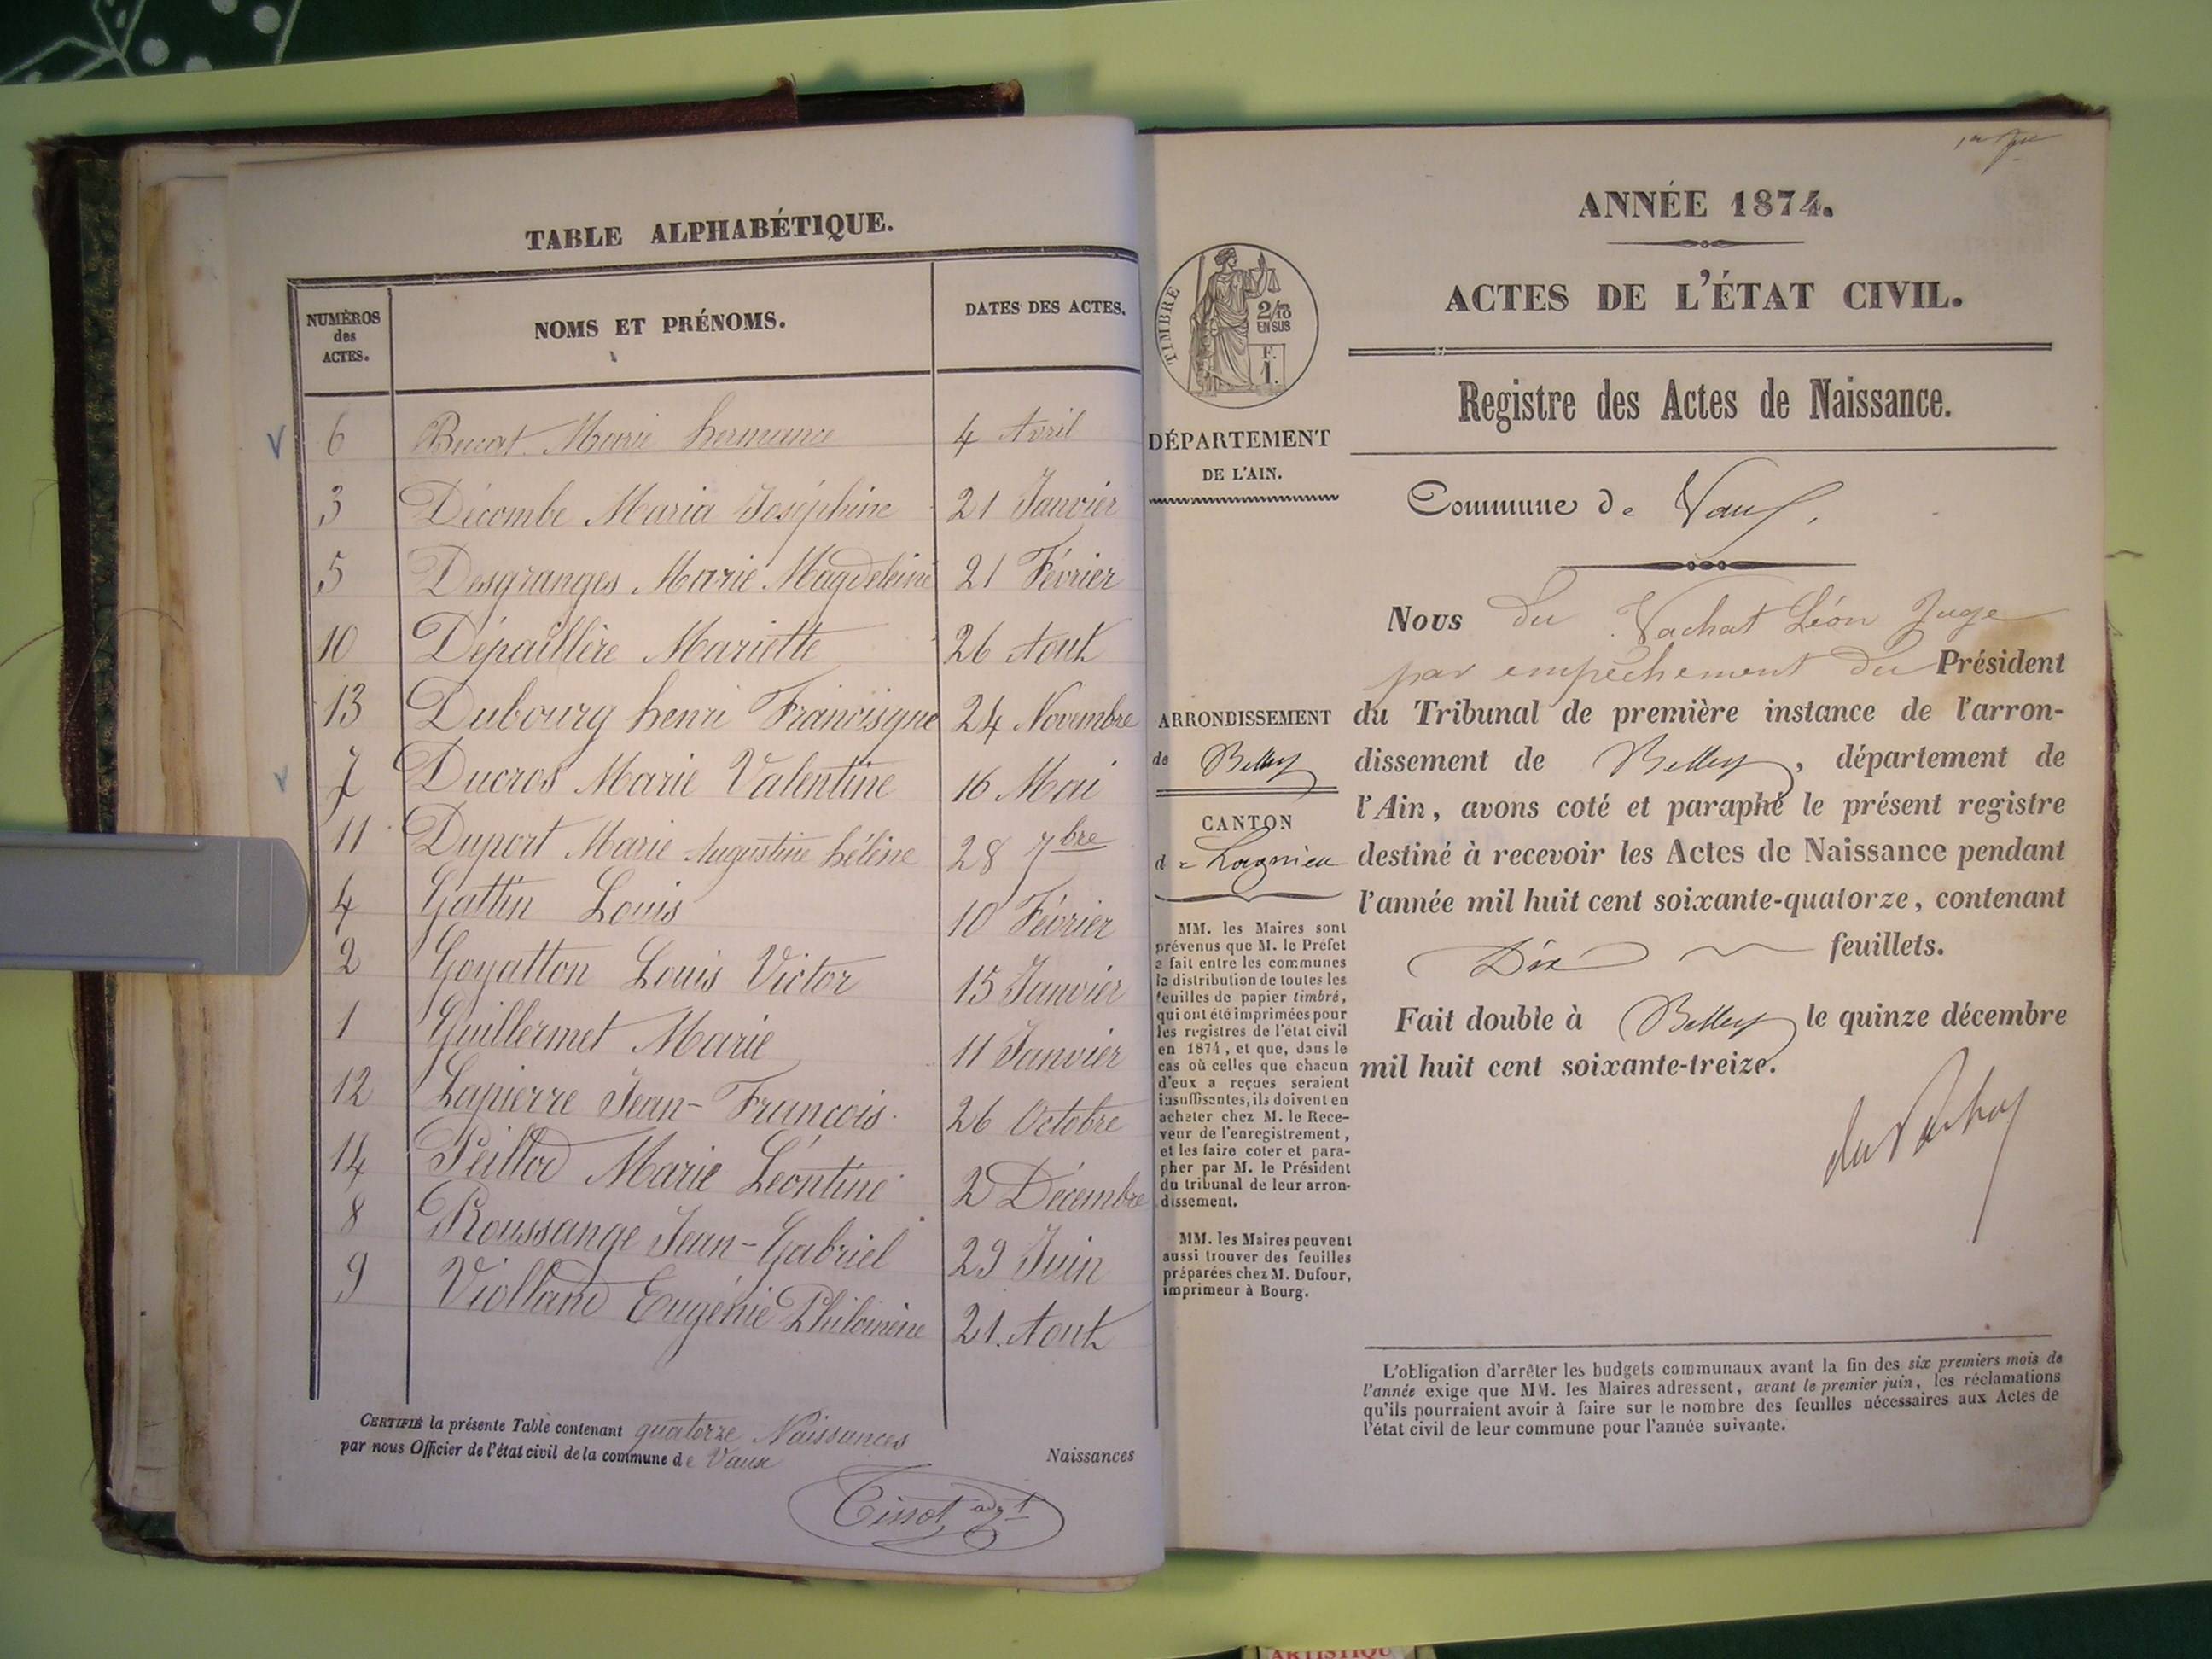 TABLE ALPHABÉTIQUE.
NUMÉROS
des
ACTES.
NOMS ET PRÉNOMS.
DATES DES ACTES.
6 Marie hermance 4 Avril
3 Décombe Maria Joséphine 21 Janvier
5 Desgranges Marie Magdeleine 21 Février
10 Dépaillère Mariette 26 Aout
13 Dubourg henri Francisque 24 Novembre
7 Ducros Marie Valentine 16 Mai
11 Duport Marie Augustine hélène 28 7bre
4 Gattin Louis 10 Février
2 Goyatton Louis Victor 15 Janvier
1 Guillermet Marie 11 Janvier
12 Lapierre Jean-François 26 Octobre
14 Peillod Marie Léontine 2 Décembre
8 Roussange Jean-Gabriel 29 Juin
9 Violland Eugénie Philomène 21 Aout
CERTIFIÉ la présente Table contenant quatorze Naissances
par nous Officier de l'état civil de la commune de Vaux
Naissances
Tissot adjt
ANNÉE 1874.
ACTES DE L'ÉTAT CIVIL.
Registre des Actes de Naissance.
TIMBRE
2/10
EN SUS
F.
1.
DÉPARTEMENT
DE L'AIN.
ARRONDISSEMENT
de Belley
CANTON
de Lagnieu
MM. les Maires sont
prévenus que M. le Préfet
a fait entre les communes
la distribution de toutes les
feuilles de papier timbré,
qui ont été imprimées pour
les registres de l'état civil
en 1874, et que, dans le
cas où celles que chacun
d'eux a reçues seraient
insuffisantes, ils doivent en
acheter chez M. le Rece-
veur de l'enregistrement,
et les faire coter et para-
pher par M. le Président
du tribunal de leur arron-
dissement.
MM. les Maires peuvent
aussi trouver des feuilles
préparées chez M. Dufour,
imprimeur à Bourg.
Commune de Vaux.
Nous du Vachat Léon Juge
par empêchement du Président
du Tribunal de première instance de l'arron-
dissement de Belley, département de
l'Ain, avons coté et paraphé le présent registre
destiné à recevoir les Actes de Naissance pendant
l'année mil huit cent soixante-quatorze, contenant
Dix feuillets.
Fait double à Belley le quinze décembre
mil huit cent soixante-treize.
du Vachat
L'obligation d'arrêter les budgets communaux avant la fin des six premiers mois de
l'année exige que MM. les Maires adressent, avant le premier juin, les réclamations
qu'ils pourraient avoir à faire sur le nombre des feuilles nécessaires aux Actes de
l'état civil de leur commune pour l'année suivante.
ARTISTIQU